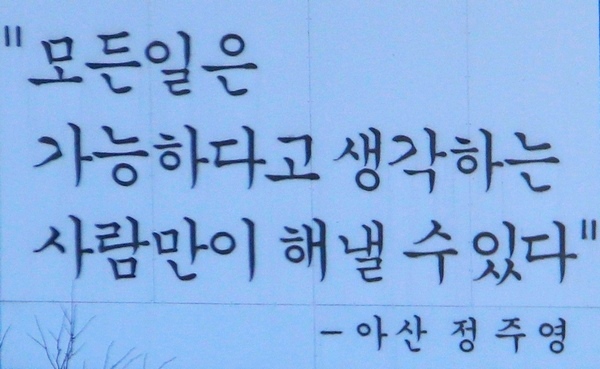 "모든일은
가능하다고 생각하는
사람만이 해낼 수 있다"
-아산 정주영